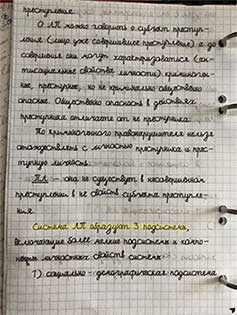 преступления.
О ЛП можно говорить о субъект преступ-
ления (лицо уже совершившее преступление) а до
совершения они могут характеризоваться (ан-
тисоциальные свойства личности) криминоген-
ное, преступное, но не криминально общественно
опасное. Общественно опасность в действиях
преступника отличает от не преступника.
По криминогенного правонарушителя нельзя
отождествлять с личностью преступника и прес-
тупную личность.
ПЛ — она не существует в несовершении
преступлений в не свойств субъекта преступле-
ния
Система ЛП образуют 3 подсистемы,
включающие более мелкие подсистемы и компо-
ненты личностных свойств системы
1) социально-демографическая подсистема